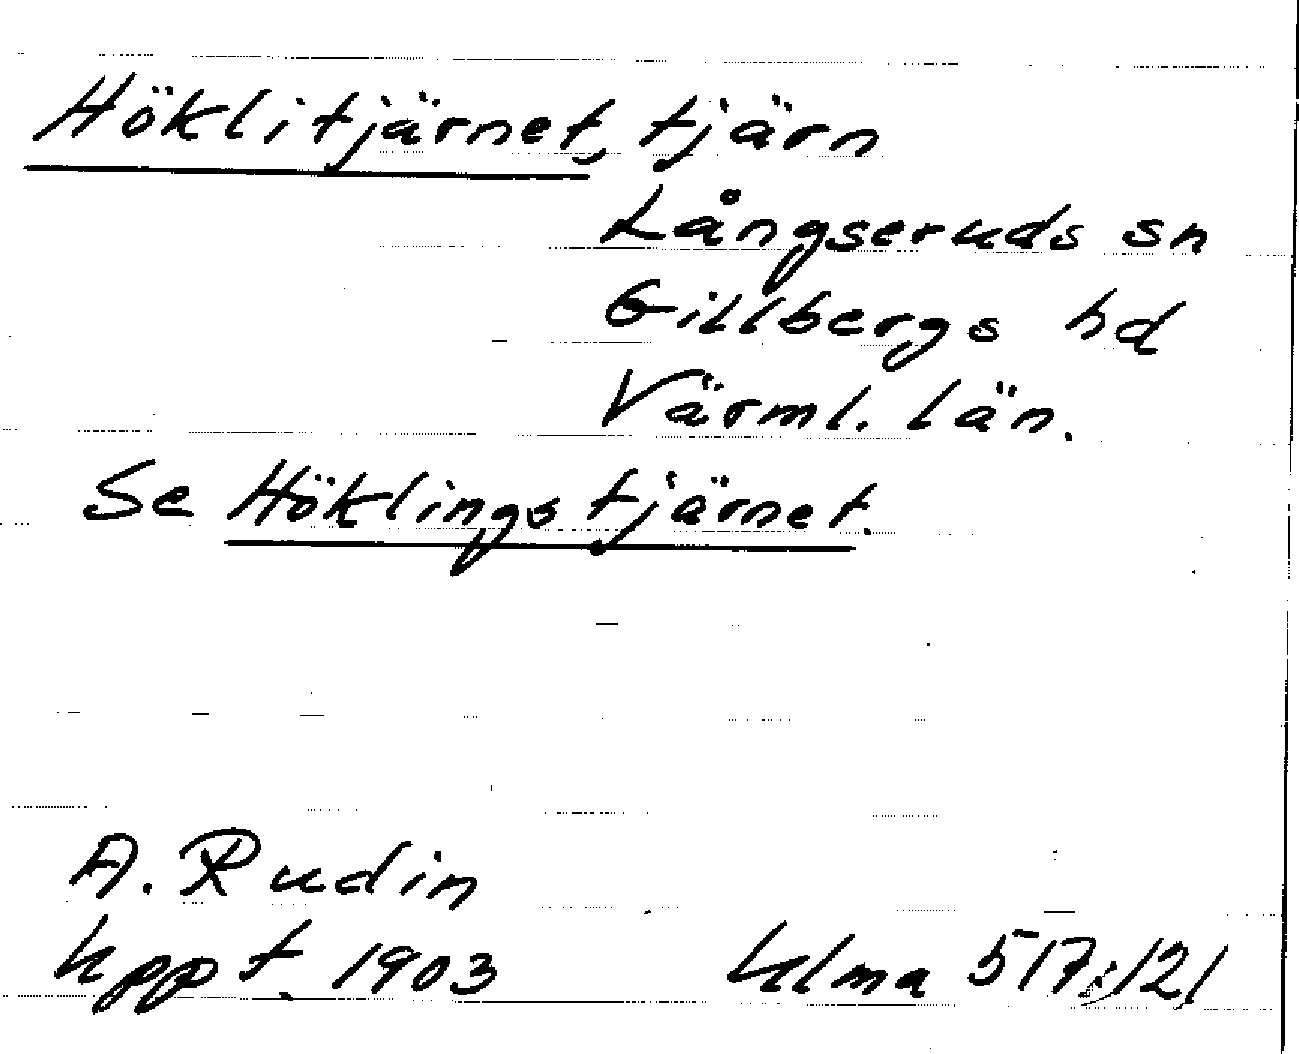 Höklitjärnet, tjärn
Långseruds sn
Gillbergs hd
Värml. län.
Se Höklingstjärnet.
A. Rudin
Uppt. 1903 Ulma 517:121